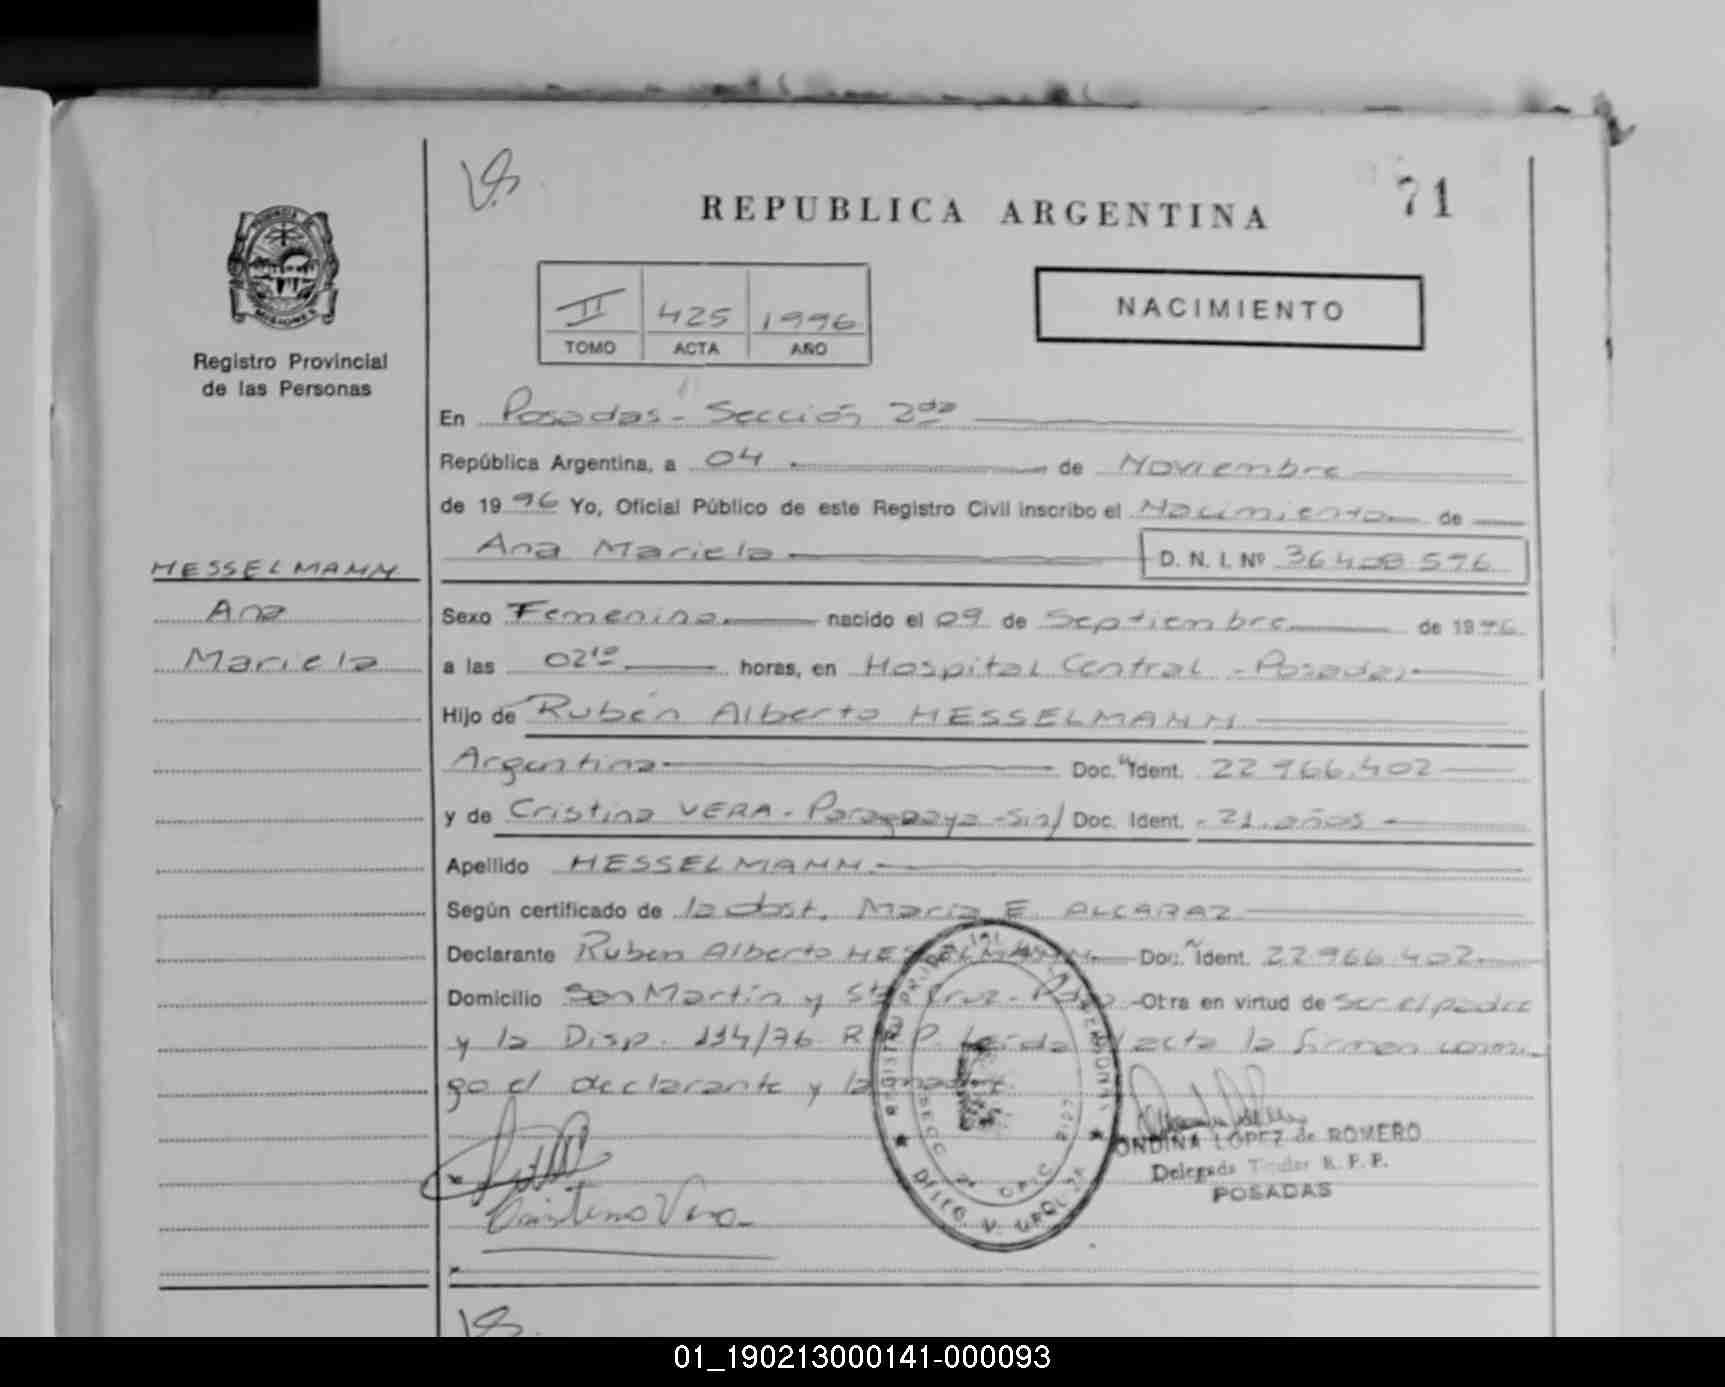 71
REPUBLICA ARGENTINA
II 425 1996
TOMO ACTA AÑO
NACIMIENTO
MISIONES
Registro Provincial
de las Personas
En Posadas - Sección 2da
República Argentina, a 04 de Noviembre
de 1996 Yo, Oficial Público de este Registro Civil inscribo el Nacimiento de
Ana Mariela D. N. I. Nº 36.408.596
HESSELMANN
Ana
Mariela
Sexo Femenino nacido el 09 de Septiembre de 1996
a las 02 10 horas, en Hospital Central - Posadas
Hijo de Rubén Alberto HESSELMANN
Argentino Doc. Ident. 22.966.402
y de Cristina VERA - Paraguaya - Sin/ Doc. Ident. - 21 años -
Apellido HESSELMANN.-
Según certificado de la obst. María E. ALCARAZ
Declarante Ruben Alberto HESSELMANN Doc. Ident. 22.966.402
Domicilio San Martín y Sta Cruz - Pdas -Otra en virtud de ser el padre
y la Disp. 114/76 R P. Leída el acta la firman conmi-
go el declarante y la madre.
Cristina Vera
ONDINA LOPEZ de ROMERO
Delegada Titular R. P. P.
POSADAS
01_190213000141-000093